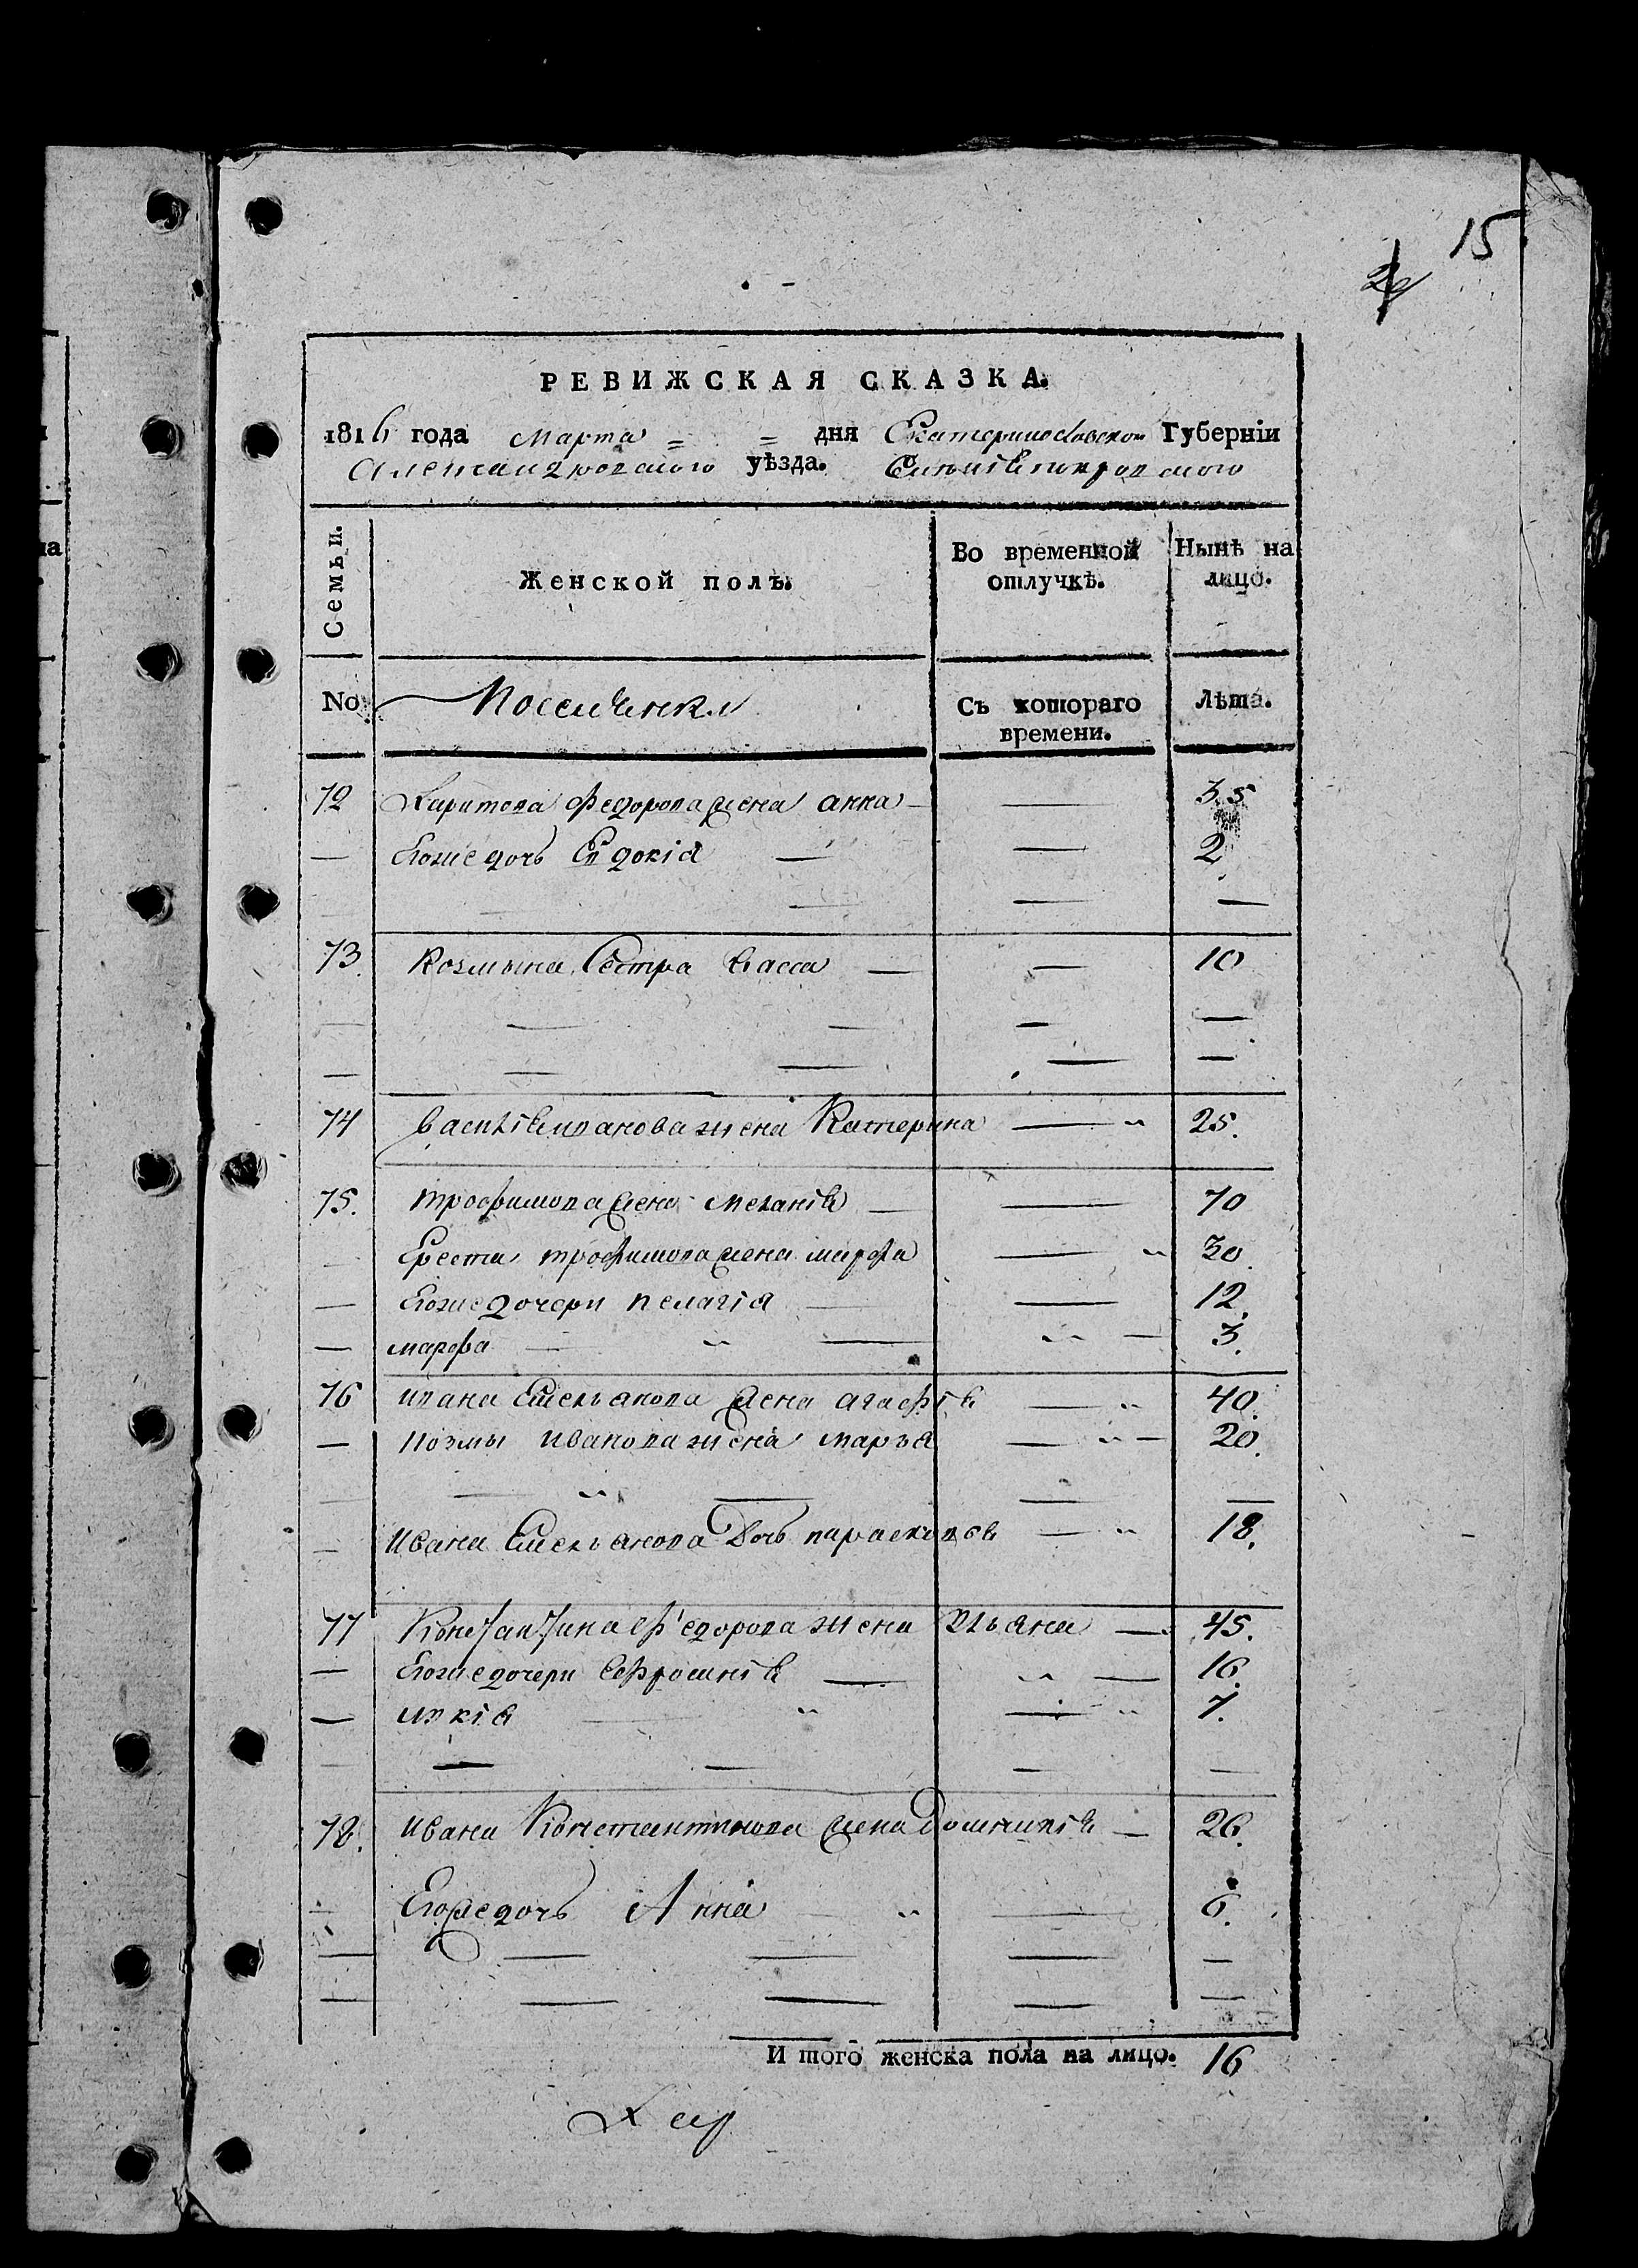 15
РЕВИЖСКАЯ СКАЗКА.
1816 года Марта = = дня Екатеринославской Губерніи
Александровского уѣзда.
Семьи.
Женской полъ.
Во временной
отлучкѣ.
Нынѣ на
лицо.
No
Посѣлянки
Съ котораго
времени.
Лѣта.
72 Харитона Федорова жена анна — — 35
— Егоже дочь Евдокіа — — 2
— — — —
73. Козмына Сестра Васса — — 10
— — — — —
— — — — —
74 Василія иванова жена Катерина — „ 25.
75. трофимова жена Меланія — — 70
— Ереста трофимова жена марфа — „ 30.
— Егоже дочери пелагіа — — 12.
— марфа — „ — „ — 3.
76 ивана Емельанова жена агафія — „ 40.
— козмы иванова жена марьа — „ — 20.
— — „ — — —
— ивана Емельанова Дочь парасковія — „ 18.
77 Константина Федорова жена Ульяна — 45.
— Егоже дочери Ефросинія — „ — 16.
— — „ — „ 7.
— — — — —
78. ивана Константинова жена Домникія — 26.
— Егоже дочь Анна — „ — 6.
— — — — —
— — — — —
И того женска пола на лицо. 16